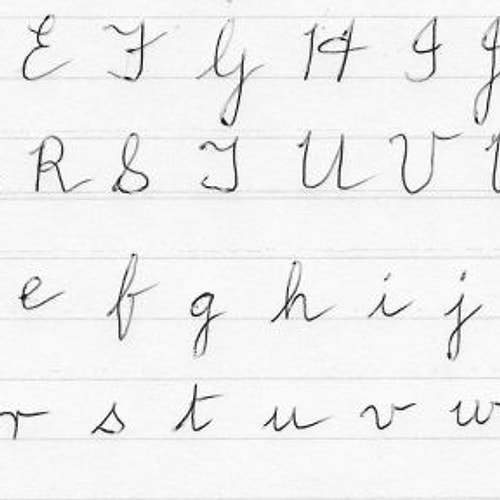 E F G H I J
R S T U V
e f g h i j
r s t u v w